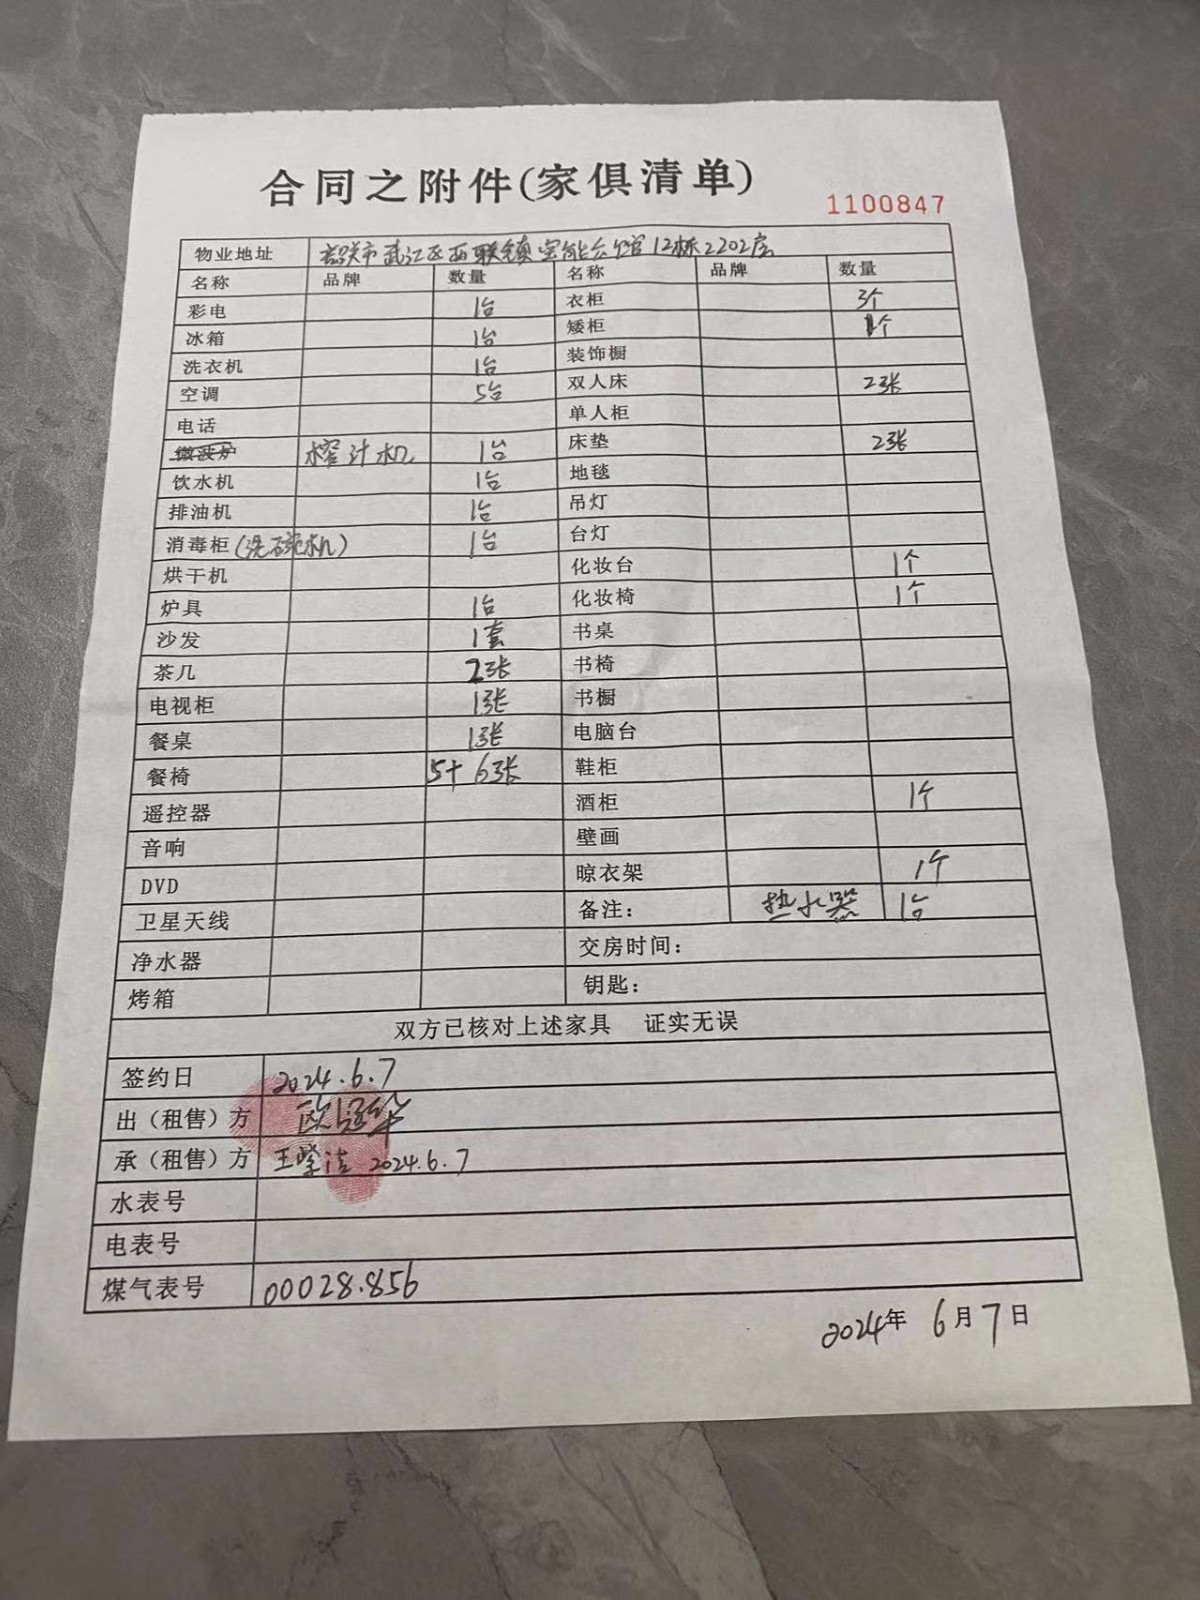 合同之附件(家俱清单)
1100847
物业地址 韶关市武江区西联镇宝能公馆12栋2202房
名称 品牌 数量 名称 品牌 数量
彩电 1台 衣柜 3个
冰箱 1台 矮柜 1个
洗衣机 1台 装饰橱
空调 5台 双人床 2张
电话 单人柜
微波炉 榨汁机 1台 床垫 2张
饮水机 1台 地毯
排油机 1台 吊灯
消毒柜(洗碗机) 1台 台灯
烘干机 化妆台 1个
炉具 1台 化妆椅 1个
沙发 1套 书桌
茶几 2张 书椅
电视柜 1张 书橱
餐桌 1张 电脑台
餐椅 5+6张 鞋柜
遥控器 酒柜 1个
音响 壁画
DVD 晾衣架 1个
卫星天线 备注: 热水器 1台
净水器 交房时间:
烤箱 钥匙:
双方已核对上述家具 证实无误
签约日 2024.6.7
出(租售)方 欧冠华
承(租售)方 王紫洁 2024.6.7
水表号
电表号
煤气表号 00028.856
2024年 6月7日